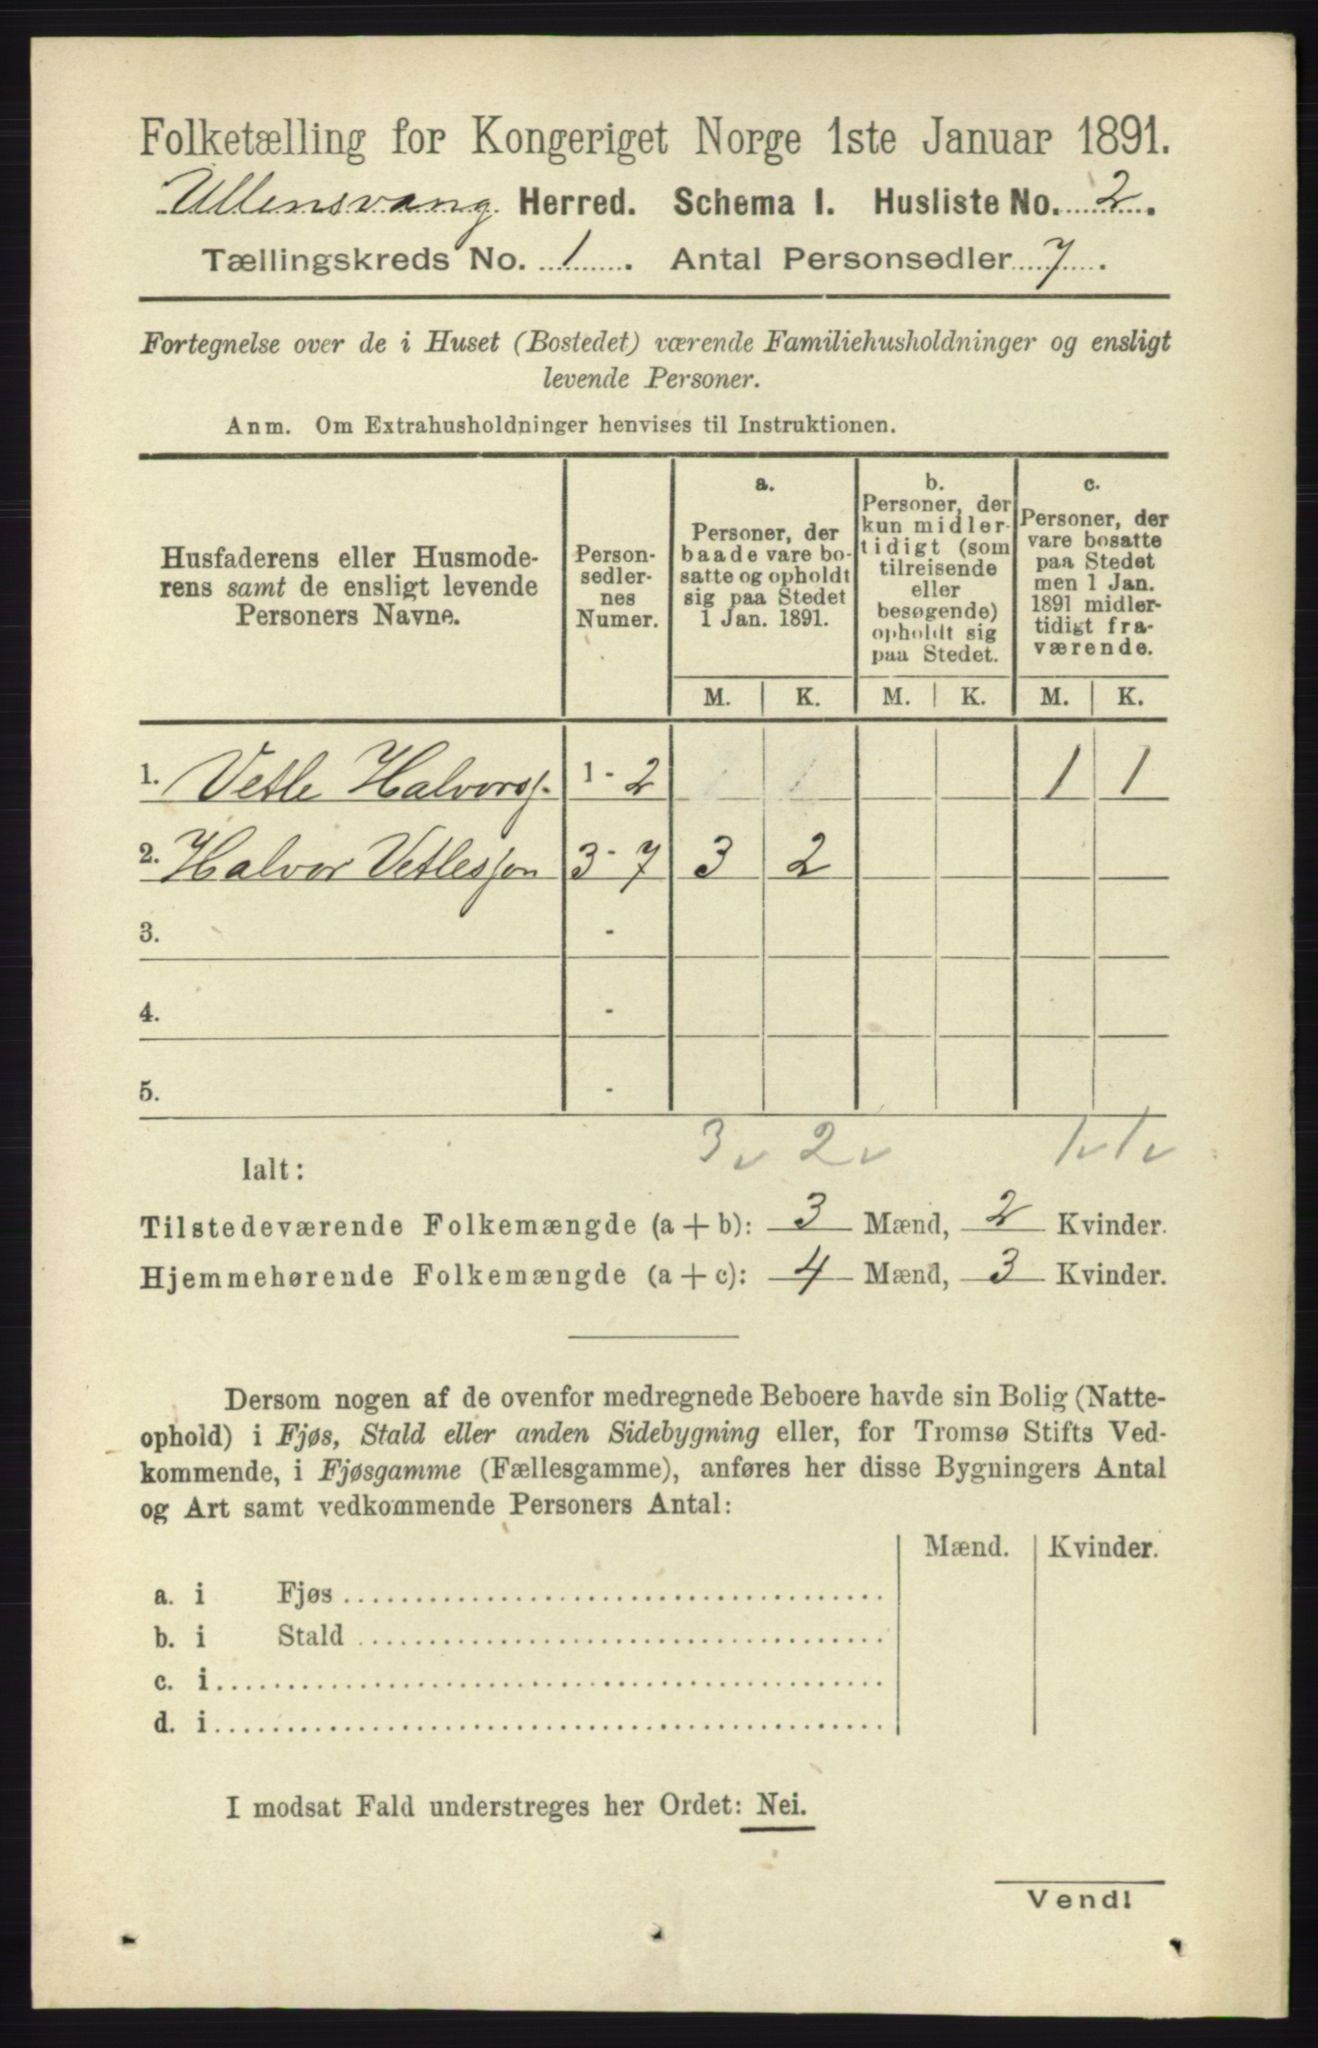 Folketælling for Kongeriget Norge 1ste Januar 1891.
Ullensvang Herred. Schema I. Husliste No. 2.
Tællingskreds No. 1. Antal Personsedler 7.
Fortegnelse over de i Huset (Bostedet) værende Familiehusholdninger og ensligt
levende Personer.
Anm. Om Extrahusholdninger henvises til Instruktionen.
Husfaderens eller Husmode-
rens samt de ensligt levende
Personers Navne.
Person-
sedler-
nes
Numer.
a.
Personer, der
baade vare bo-
satte og opholdt
sig paa Stedet
1 Jan. 1891.
b.
Personer, der
kun midler-
tidigt (som
tilreisende
eller
besøgende)
opholdt sig
paa Stedet.
c.
Personer, der
vare bosatte
paa Stedet
men 1 Jan.
1891 midler-
tidigt fra-
værende.
M. K. M. K. M. K.
1. Vetle Halvorss. 1 - 2 1 1 1 1
2. Halvor Vetlesson 3 - 7 3 2
3. -
4. -
5. -
3v 2v 1v 1v
Ialt:
Tilstedeværende Folkemængde (a + b): 3 Mænd, 2 Kvinder.
Hjemmehørende Folkemængde (a + c): 4 Mænd, 3 Kvinder.
Dersom nogen af de ovenfor medregnede Beboere havde sin Bolig (Natte-
ophold) i Fjøs, Stald eller anden Sidebygning eller, for Tromsø Stifts Ved-
kommende, i Fjøsgamme (Fællesgamme), anføres her disse Bygningers Antal
og Art samt vedkommende Personers Antal:
Mænd. Kvinder.
a. i Fjøs
b. i Stald
c. i
d. i
I modsat Fald understreges her Ordet: Nei.
Vend!